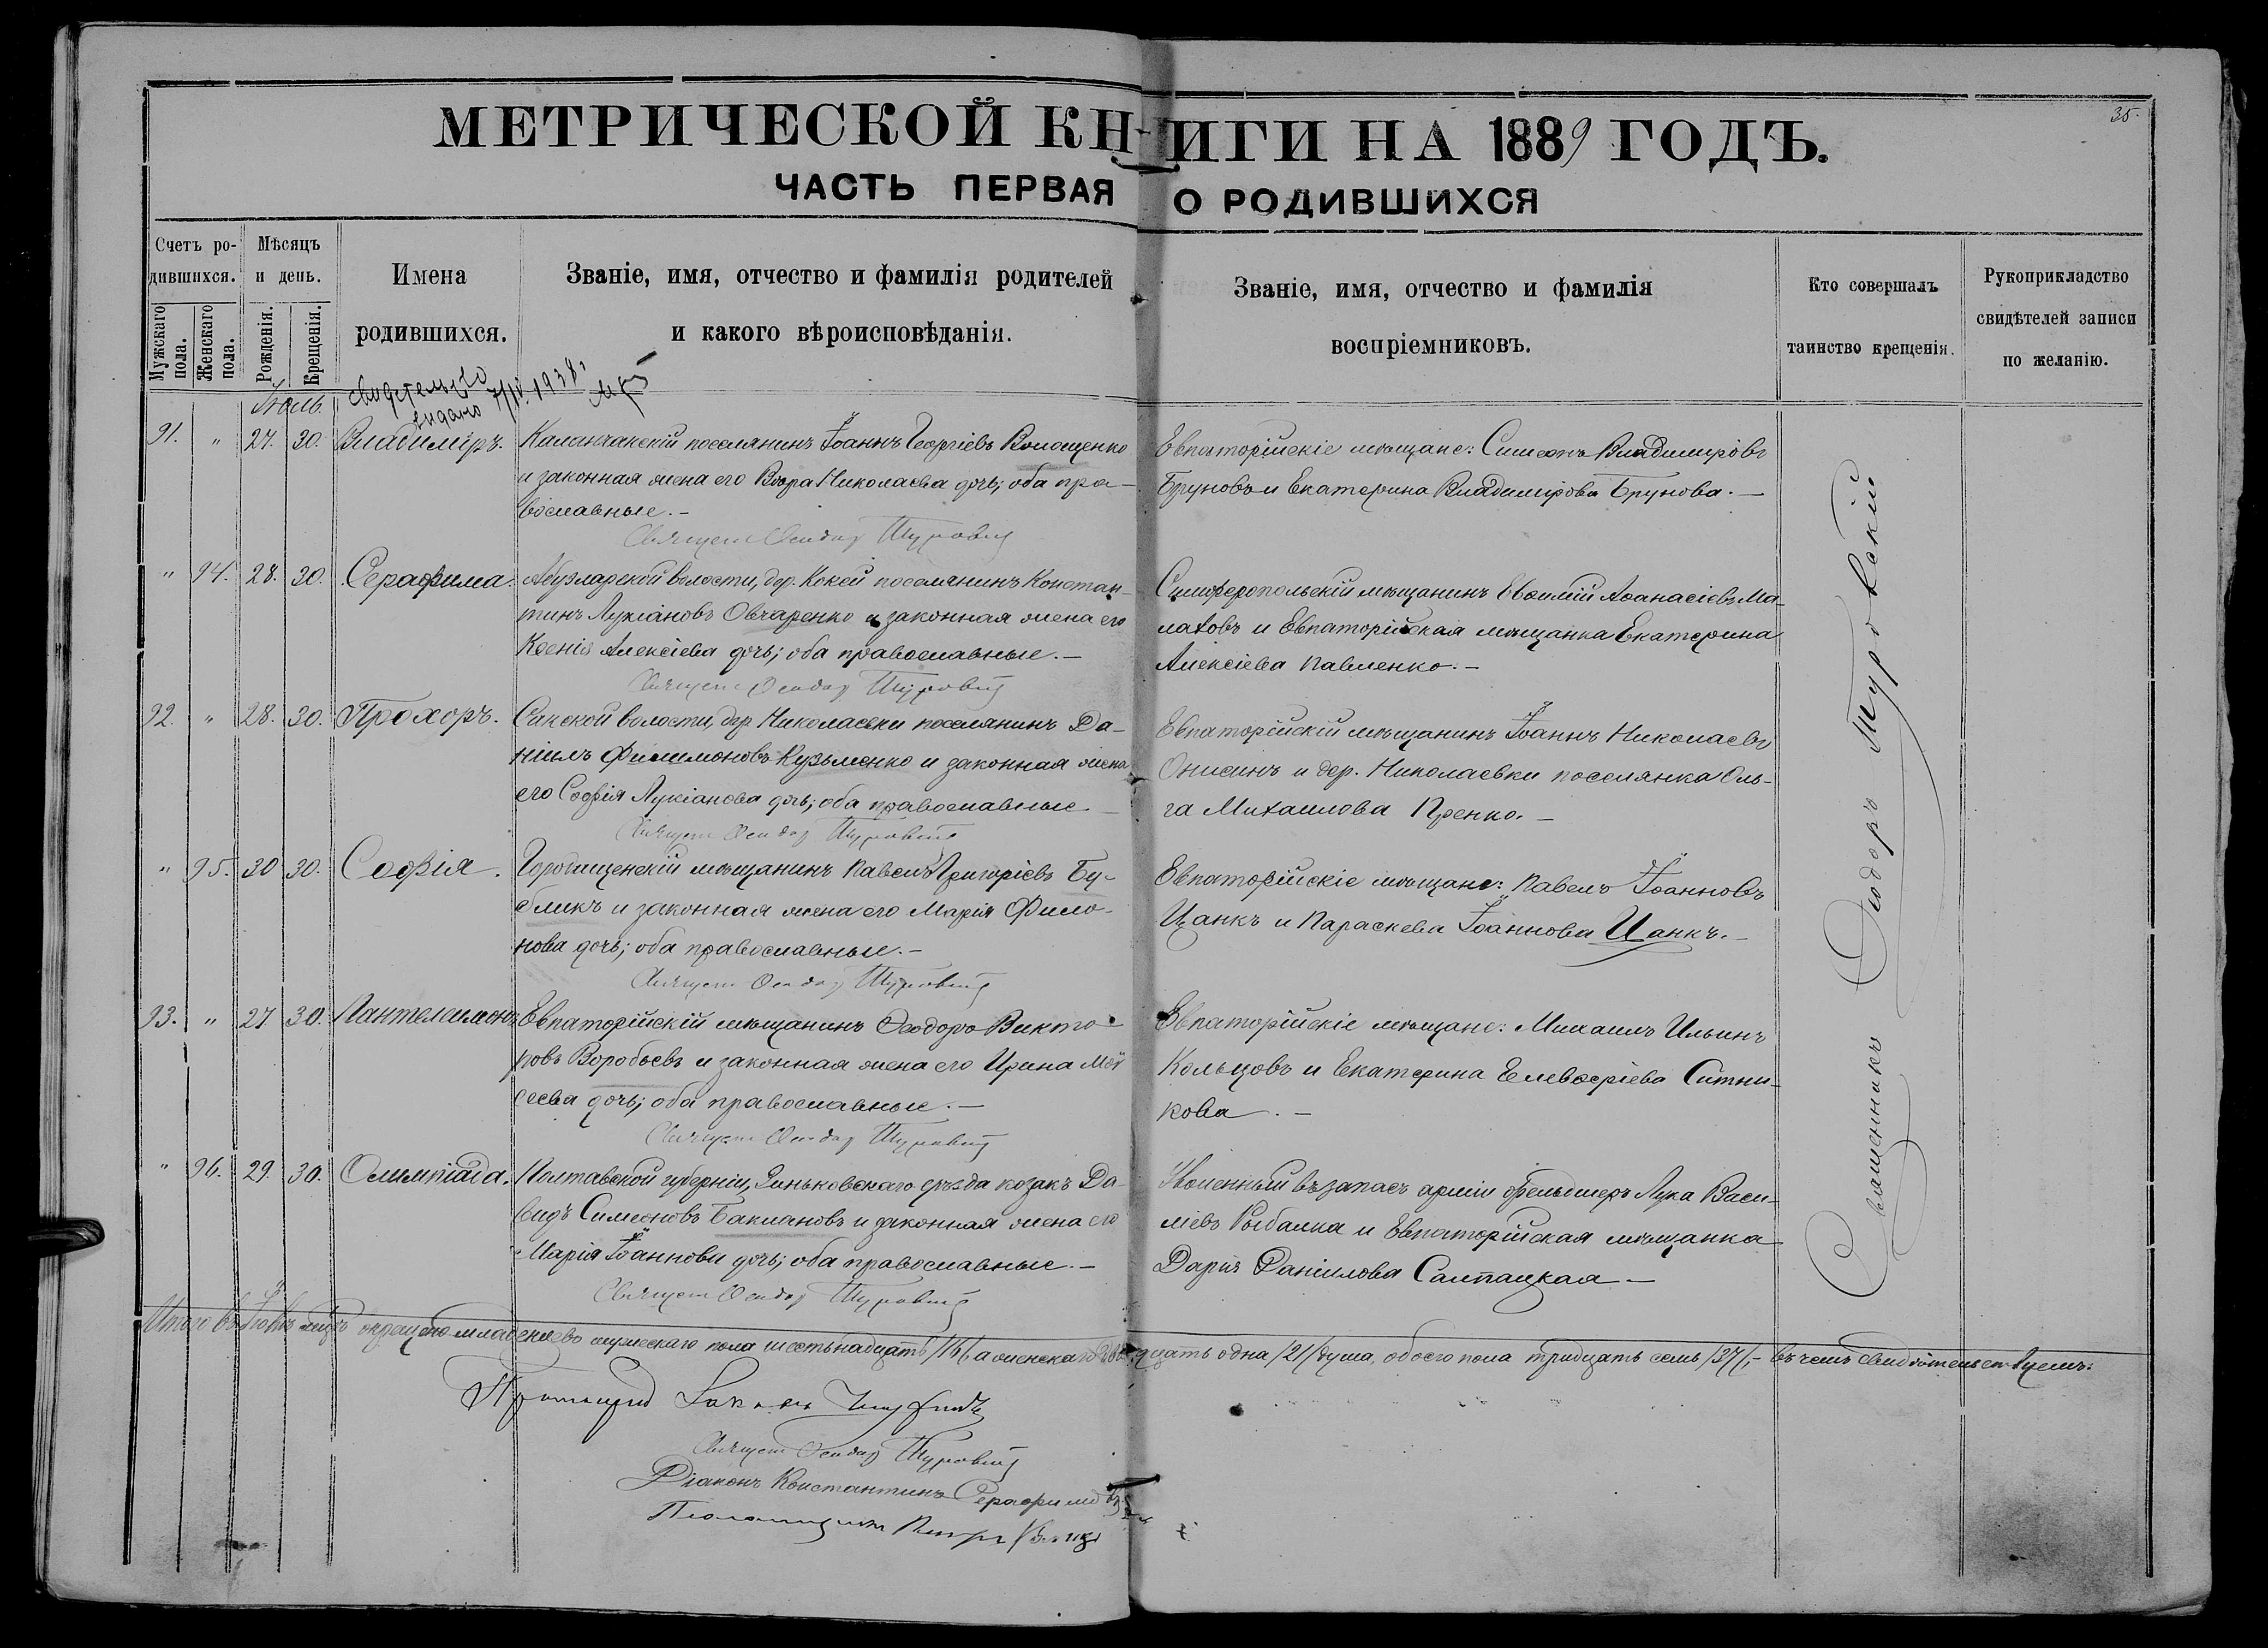 МЕТРИЧЕСКОЙ КНИГИ НА 1889 ГОДЪ.
35.
ЧАСТЬ ПЕРВАЯ О РОДИВШИХСЯ
Счетъ ро-
дившихся.
Мужскаго пола.
Женскаго пола.
Мѣсяцъ
и день.
Рожденія.
Крещенія.
Имена
родившихся.
Званіе, имя, отчество и фамилія родителей
и какого вѣроисповѣданія.
Званіе, имя, отчество и фамилія
воспріемниковъ.
Кто совершалъ
таинство крещенія.
Рукоприкладство
свидѣтелей записи
по желанію.
выдано 7/IV 1938
Іюль.
91. " 27. 30. Владиміръ.
Каланчакскій поселянинъ Іоаннъ Георгіевъ Волощенко
и законная жена его Вѣра Николаева дочь; оба пра-
вославные.-
Евпаторійскіе мѣщане: Симеонъ Владиміровъ
Бруновъ и Екатерина Владимірова Брунова.-
Священ Ѳеодор Туровскій
" 94. 28. 30. Серафима.
Абузларской волости, дер. Кокей поселянинъ Констан-
тинъ Лукіановъ Овчаренко и законная жена его
Ксенія Алексіева дочь; оба православные.-
Симферопольскій мѣщанинъ Евѳимій Аѳанасіевъ Ма-
лаховъ и Евпаторійская мѣщанка Екатерина
Алексіева Павленко.-
Священ Ѳеодор Туровскій
92. " 28. 30. Прохоръ.
Сакской волости, дер. Николаевки поселянинъ Да-
ніилъ Филимоновъ Кузьменко и законная жена
его Софія Лукіанова дочь; оба православные.-
Евпаторійскій мѣщанинъ Іоаннъ Николаевъ
Онисинъ и дер. Николаевки поселянка Оль-
га Михаилова Пренко.-
Священ Ѳеодор Туровскій
" 95. 30 30. Софія.
Городищенскій мѣщанинъ Павелъ Григоріевъ Бу-
бликъ и законная жена его Марія Фило-
нова дочь; оба православные.-
Евпаторійскіе мѣщане: Павелъ Іоанновъ
Цанкъ и Параскева Іоаннова Цанкъ.-
Священ Ѳеодор Туровскій
93. " 27. 30. Пантелеимонъ
Евпаторійскій мѣщанинъ Ѳеодоръ Викто-
ровъ Воробьевъ и законная жена его Ирина Мои
сеева дочь; оба православные.-
Евпаторійскіе мѣщане: Михаилъ Ильинъ
Кольцовъ и Екатерина Елевѳеріева Ситни-
кова.-
Священ Ѳеодор Туровскій
" 96. 29. 30. Олимпіада.
Полтавской губерніи, Зиньковскаго уѣзда козакъ Да-
видъ Симеоновъ Баклановъ и законная жена его
Марія Іоаннова дочь; оба православные.-
Уволенный въ запасъ арміи фельдшеръ Лука Васи-
ліевъ Рыбалка и Евпаторійская мѣщанка
Дарія Даніилова Салтацкая.-
Священ Ѳеодор Туровскій
Священникъ Ѳеодоръ Туровскій
Итого въ Іюлѣ мѣсяцѣ окрещено младенцевъ мужескаго пола шестьнадцать /16/, а женскаго двадцать одна /21/ душа, обоего пола тридцать семь /37/,- въ чемъ свидѣтельствуемъ:
Протоіерей
Священ Ѳеодор Туровскій
Діаконъ Константинъ Серафимовъ